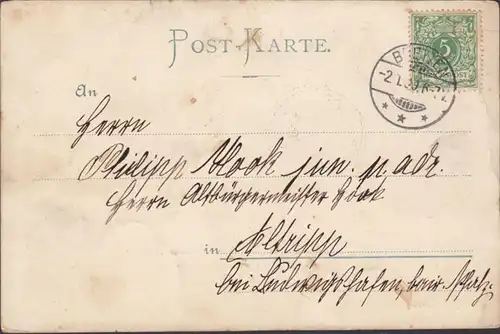 POST-KARTE.
5
-2.1.
An
Herrn
Philipp Hook jun. p. adr.
Herrn Altbürgermeister Hook
in Altripp
bei Ludwigshafen, bair. Pfalz.